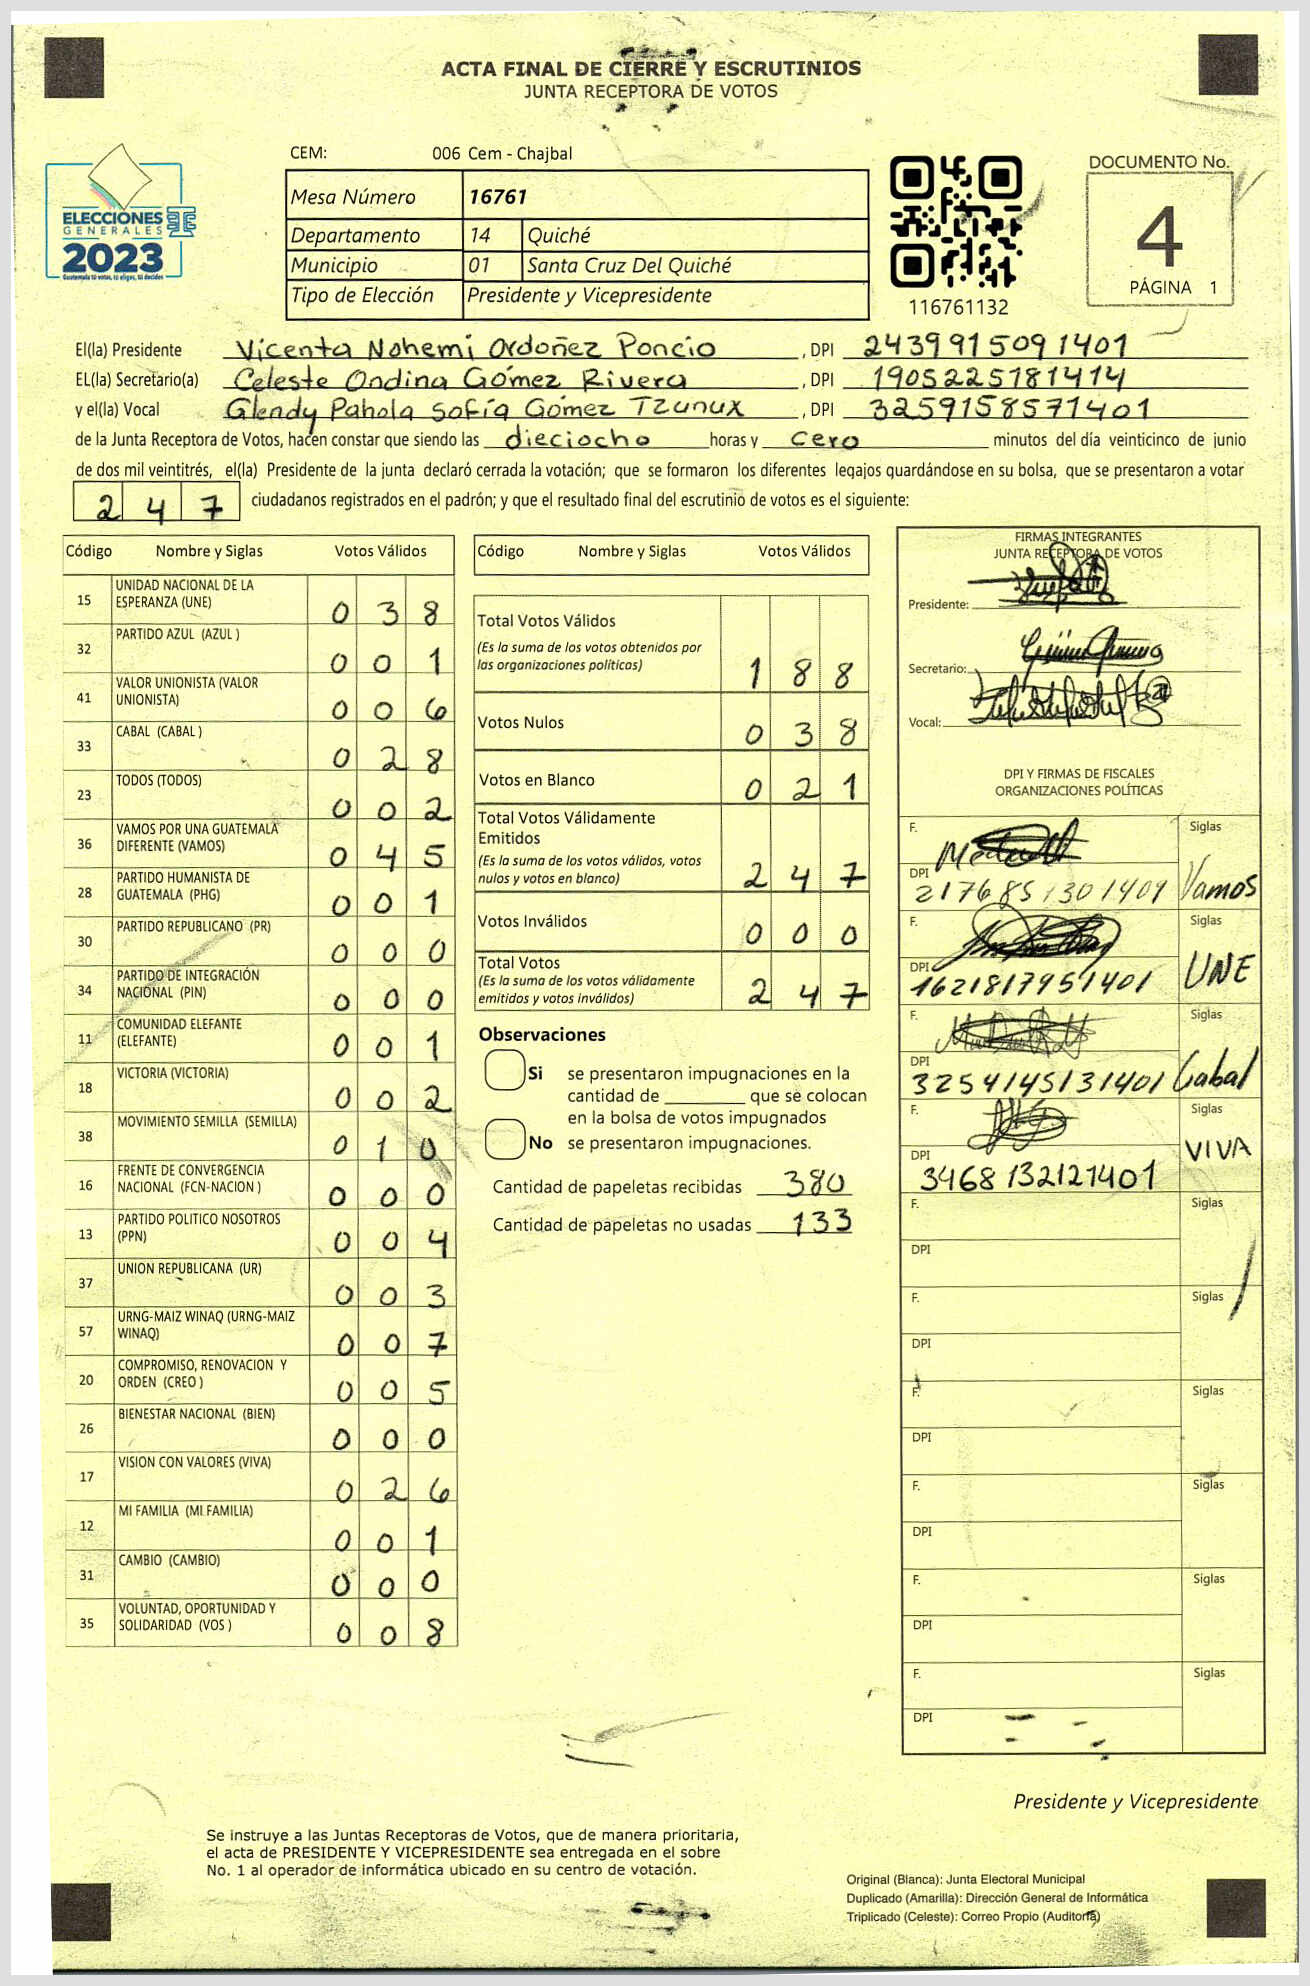 ACTA FINAL DE CIERRE Y ESCRUTINIOS
JUNTA RECEPTORA DE VOTOS
CEM: 006 Cem - Chajbal
DOCUMENTO No.
4
PÁGINA 1
ELECCIONES
GENERALES
2023
Guatemala tú votas, tú eliges, tú decides
Mesa Número 16761
Departamento 14 Quiché
Municipio 01 Santa Cruz Del Quiché
Tipo de Elección Presidente y Vicepresidente
116761132
El(la) Presidente Vicenta Nohemi Ordoñez Poncio , DPI 2439915091401
EL(la) Secretario(a) Celeste Ondina Gómez Rivera , DPI 1905225181414
y el(la) Vocal Glendy Pahola Sofía Gómez Tzunux , DPI 3259158571401
de la Junta Receptora de Votos, hacen constar que siendo las dieciocho horas y cero minutos del día veinticinco de junio
de dos mil veintitrés, el(la) Presidente de la junta declaró cerrada la votación; que se formaron los diferentes legajos guardándose en su bolsa, que se presentaron a votar
247 ciudadanos registrados en el padrón; y que el resultado final del escrutinio de votos es el siguiente:
Código Nombre y Siglas Votos Válidos
15 UNIDAD NACIONAL DE LA
ESPERANZA (UNE) 038
32 PARTIDO AZUL (AZUL ) 001
41 VALOR UNIONISTA (VALOR
UNIONISTA) 006
33 CABAL (CABAL ) 028
23 TODOS (TODOS) 002
36 VAMOS POR UNA GUATEMALA
DIFERENTE (VAMOS) 045
28 PARTIDO HUMANISTA DE
GUATEMALA (PHG) 001
30 PARTIDO REPUBLICANO (PR) 000
34 PARTIDO DE INTEGRACIÓN
NACIONAL (PIN) 000
11 COMUNIDAD ELEFANTE
(ELEFANTE) 001
18 VICTORIA (VICTORIA) 002
38 MOVIMIENTO SEMILLA (SEMILLA) 010
16 FRENTE DE CONVERGENCIA
NACIONAL (FCN-NACION ) 000
13 PARTIDO POLITICO NOSOTROS
(PPN) 004
37 UNION REPUBLICANA (UR) 003
57 URNG-MAIZ WINAQ (URNG-MAIZ
WINAQ) 007
20 COMPROMISO, RENOVACION Y
ORDEN (CREO ) 005
26 BIENESTAR NACIONAL (BIEN) 000
17 VISION CON VALORES (VIVA) 026
12 MI FAMILIA (MI FAMILIA) 001
31 CAMBIO (CAMBIO) 000
35 VOLUNTAD, OPORTUNIDAD Y
SOLIDARIDAD (VOS ) 008
Código Nombre y Siglas Votos Válidos
Total Votos Válidos
(Es la suma de los votos obtenidos por
las organizaciones políticas) 188
Votos Nulos 038
Votos en Blanco 021
Total Votos Válidamente
Emitidos
(Es la suma de los votos válidos, votos
nulos y votos en blanco) 247
Votos Inválidos 000
Total Votos
(Es la suma de los votos válidamente
emitidos y votos inválidos) 247
Observaciones
Si se presentaron impugnaciones en la
cantidad de ________ que se colocan
en la bolsa de votos impugnados
No se presentaron impugnaciones.
Cantidad de papeletas recibidas 380
Cantidad de papeletas no usadas 133
FIRMAS INTEGRANTES
JUNTA RECEPTORA DE VOTOS
Presidente:
Secretario:
Vocal:
DPI Y FIRMAS DE FISCALES
ORGANIZACIONES POLÍTICAS
F. Siglas
DPI 2176851301409 Vamos
F. Siglas
DPI 1621817951401 UNE
F. Siglas
DPI 3254145131401 Cabal
F. Siglas
DPI 3468132121401 VIVA
F. Siglas
DPI
F. Siglas
DPI
F. Siglas
DPI
F. Siglas
DPI
F. Siglas
DPI
F. Siglas
DPI
Presidente y Vicepresidente
Se instruye a las Juntas Receptoras de Votos, que de manera prioritaria,
el acta de PRESIDENTE Y VICEPRESIDENTE sea entregada en el sobre
No. 1 al operador de informática ubicado en su centro de votación.
Original (Blanca): Junta Electoral Municipal
Duplicado (Amarilla): Dirección General de Informática
Triplicado (Celeste): Correo Propio (Auditoría)